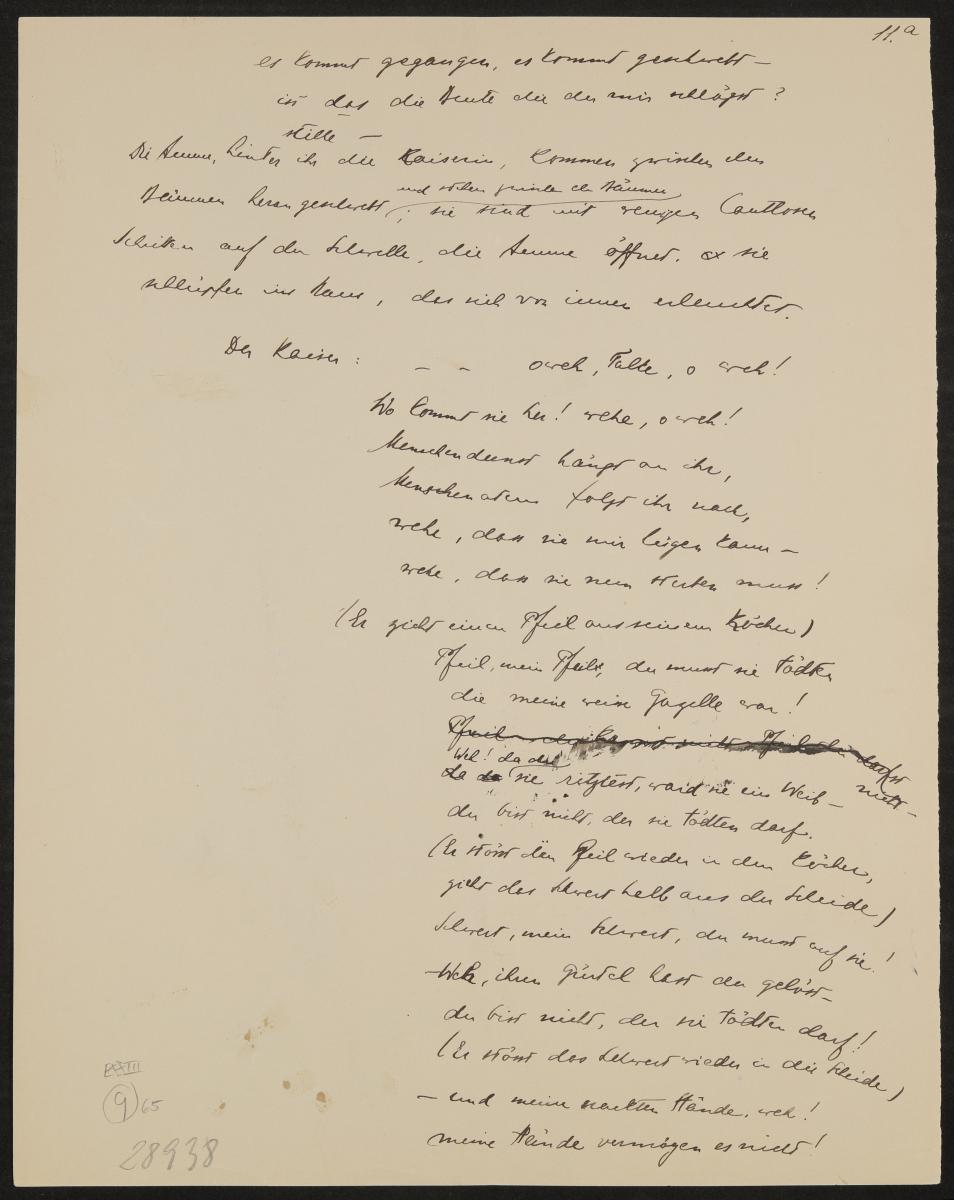 11.a
es kommt gegangen, es kommt geschwebt –
ist das die Beute die du mir schlägst?
stille –
Die Amme, hinter ihr die Kaiserin, kommen zwischen den
und stehen zwischen den Bäumen
Bäumen herangeschwebt; sie sind mit wenigen lautlosen
Schritten auf der Schwelle, die Amme öffnet. sie
schlüpfen ins Haus, das sich von innen erleuchtet.
Der Kaiser: – – o weh, Falke, o weh!
Wo kommt sie her! wehe, o weh!
Menschendunst hängt an ihr,
Menschenatem folgt ihr nach,
wehe, dass sie mir lügen kann –
wehe, dass sie nun sterben muss!
(Er zieht einen Pfeil aus seinem Köcher)
Pfeil, mein Pfeil, du musst sie tödten
die meine weisse Gazelle war!
Pfeil darfst
Weh! da du nicht –
da du sie ritztest, ward sie ein Weib –
du bist nicht, der sie tödten darf.
(Er stösst den Pfeil wieder in den Köcher,
zieht das Schwert halb aus der Scheide)
Schwert, mein Schwert, du musst auf sie!
– Weh, ihren Gürtel hast du gelöst –
du bist nicht, der sie tödten darf!
(Er stösst das Schwert wieder in die Scheide)
– und meine nackten Hände, weh!
meine Hände vermögen es nicht!
9 65
28938